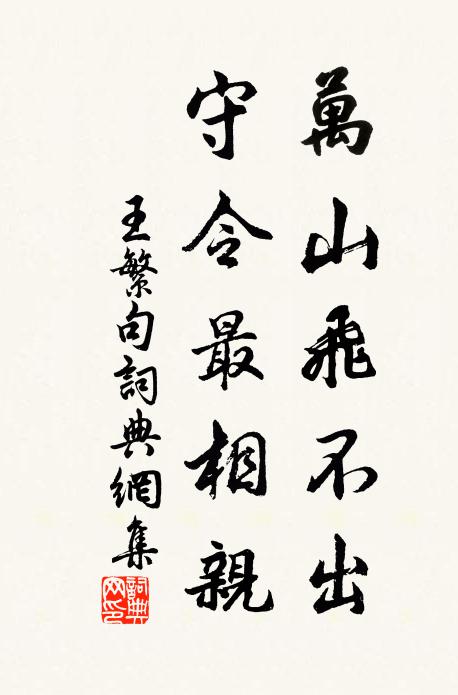 萬山飛不出
守令最相親
王繁句詞典網集
詞典
网印